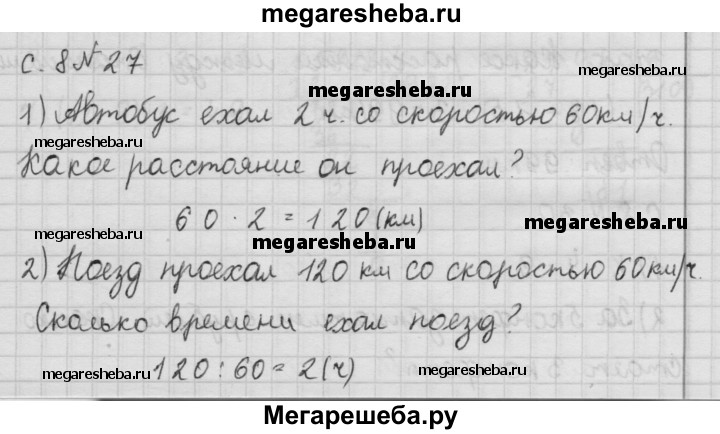 megaresheba.ru
с. 8 № 27
megaresheba.ru
megaresheba.ru
1) Автобус ехал 2 ч. со скоростью 60 км/ч.
megaresheba.ru
Какое расстояние он проехал?
60 · 2 = 120 (км)
megaresheba.ru
megaresheba.ru
2) Поезд проехал 120 км со скоростью 60 км/ч.
Сколько времени ехал поезд?
megaresheba.ru 120 : 60 = 2 (ч)
megaresheba.ru
Мегарешеба.ру